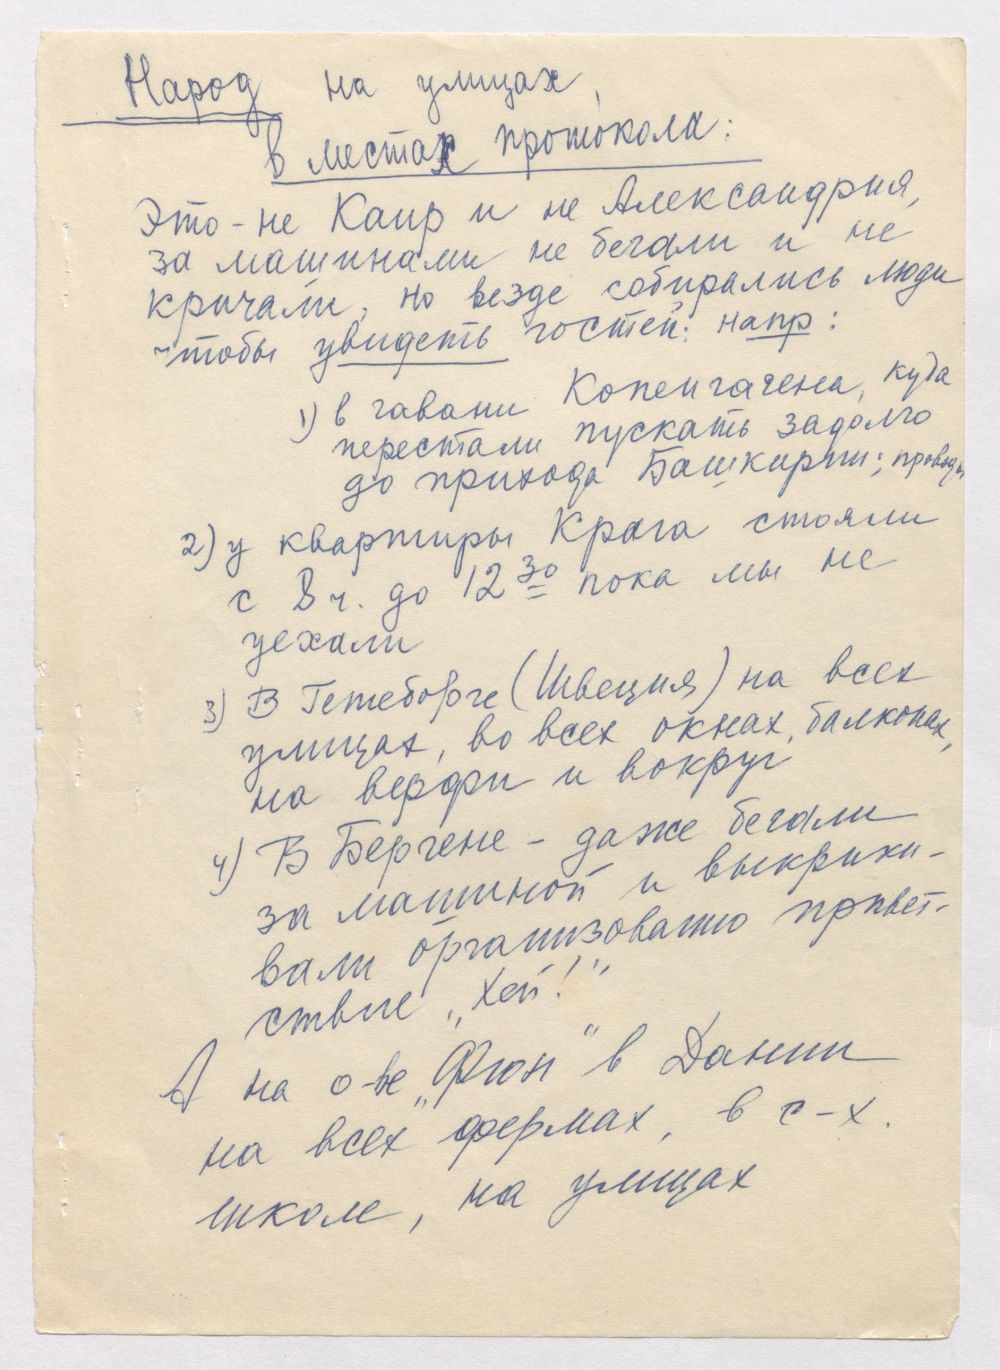 Народ на улицах,
в местах протокола:
Это - не Каир и не Александрия,
за машинами не бегали и не
кричали, но везде собирались люди
чтобы увидеть гостей: напр:
1) в гавани Копенгагена, куда
перестали пускать задолго
до прихода Башкирии; проводы
2) у квартиры Крага стояли
с 8 ч. до 12 30 пока мы не
уехали
3) В Гетеборге (Швеция) на всех
улицах, во всех окнах, балконах,
на верфи и вокруг
4) В Бергене - даже бегали
за машиной и выкрики-
вали организованно приvet-
ствие „Хей!"
А на о-ве „Фюн" в Дании
на всех фермах, в с-х.
школе, на улицах